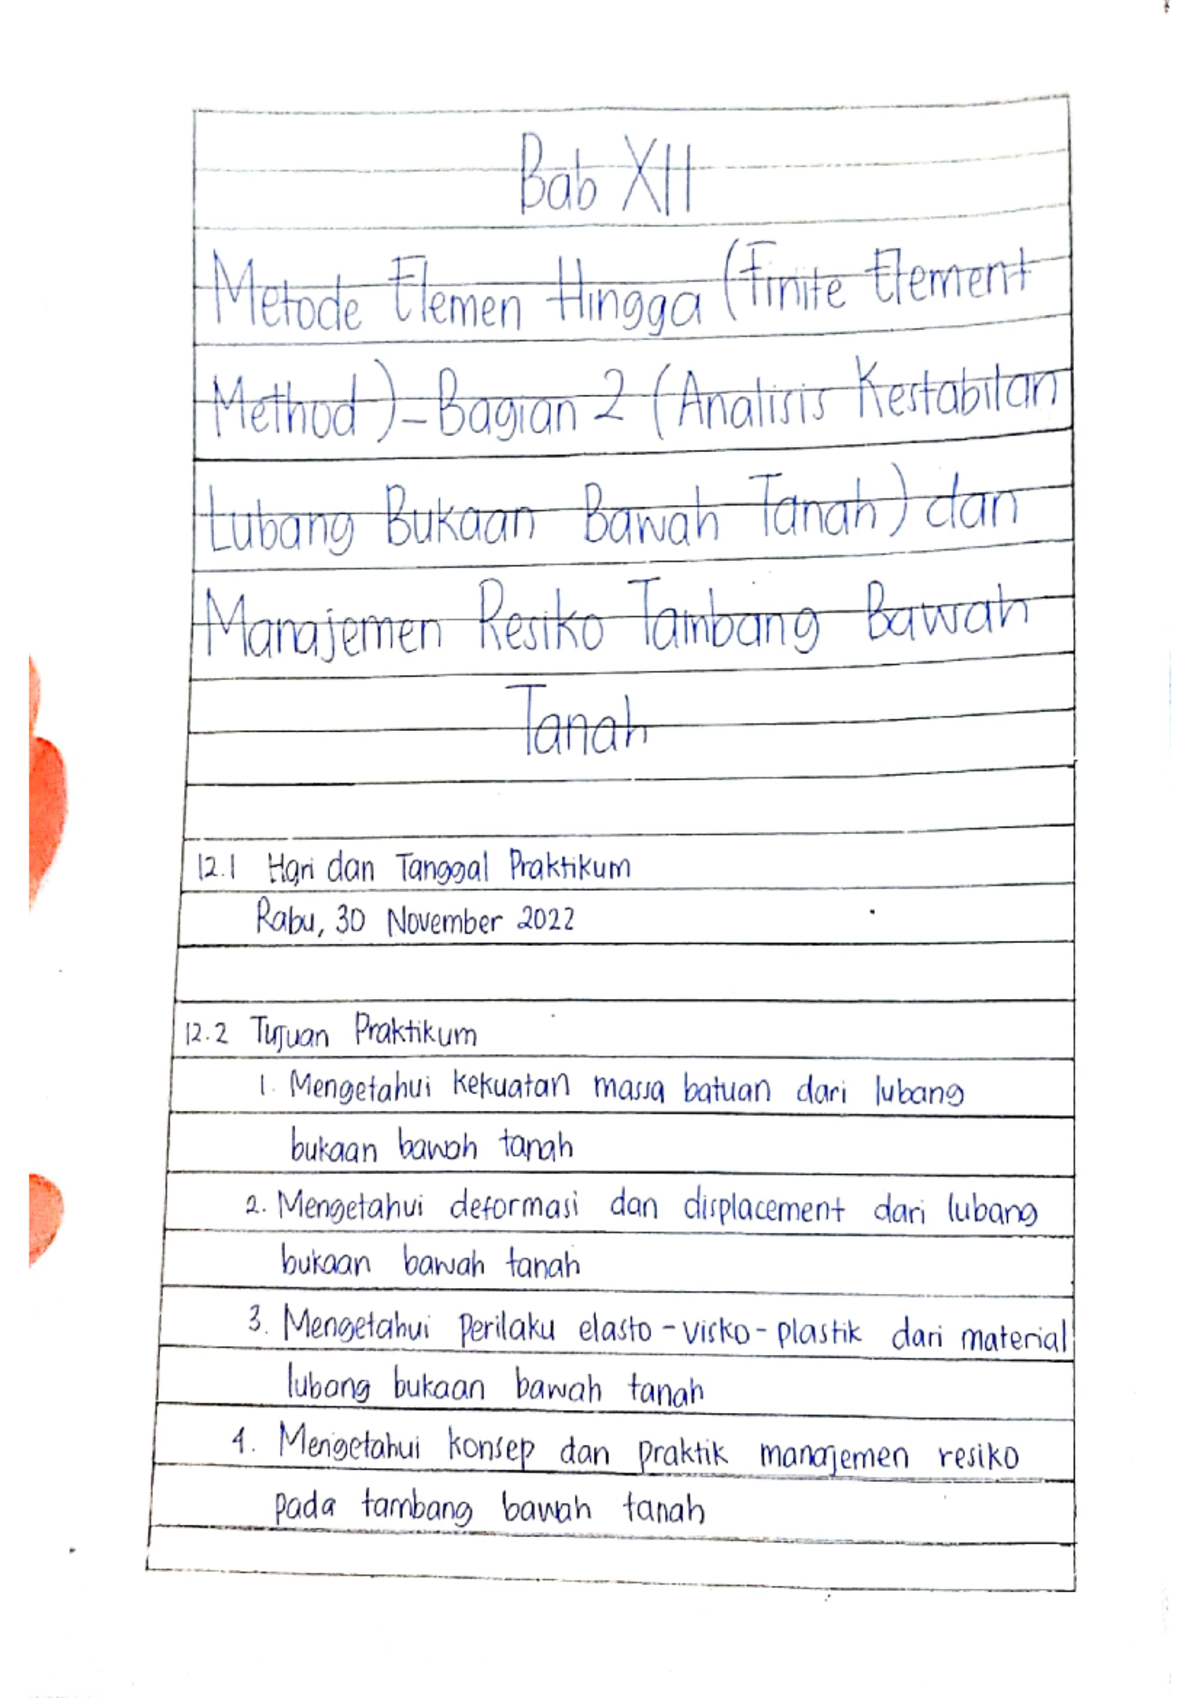 Bab XII
Metode Elemen Hingga (Finite Element
Method)-Bagian 2 (Analisis Kestabilan
Lubang Bukaan Bawah Tanah) dan
Manajemen Resiko Tambang Bawah
Tanah
12.1 Hari dan Tanggal Praktikum
Rabu, 30 November 2022
12.2 Tujuan Praktikum
1. Mengetahui kekuatan massa batuan dari lubang
bukaan bawah tanah
2. Mengetahui deformasi dan displacement dari lubang
bukaan bawah tanah
3. Mengetahui perilaku elasto-visko-plastik dari material
lubang bukaan bawah tanah
4. Mengetahui konsep dan praktik manajemen resiko
pada tambang bawah tanah